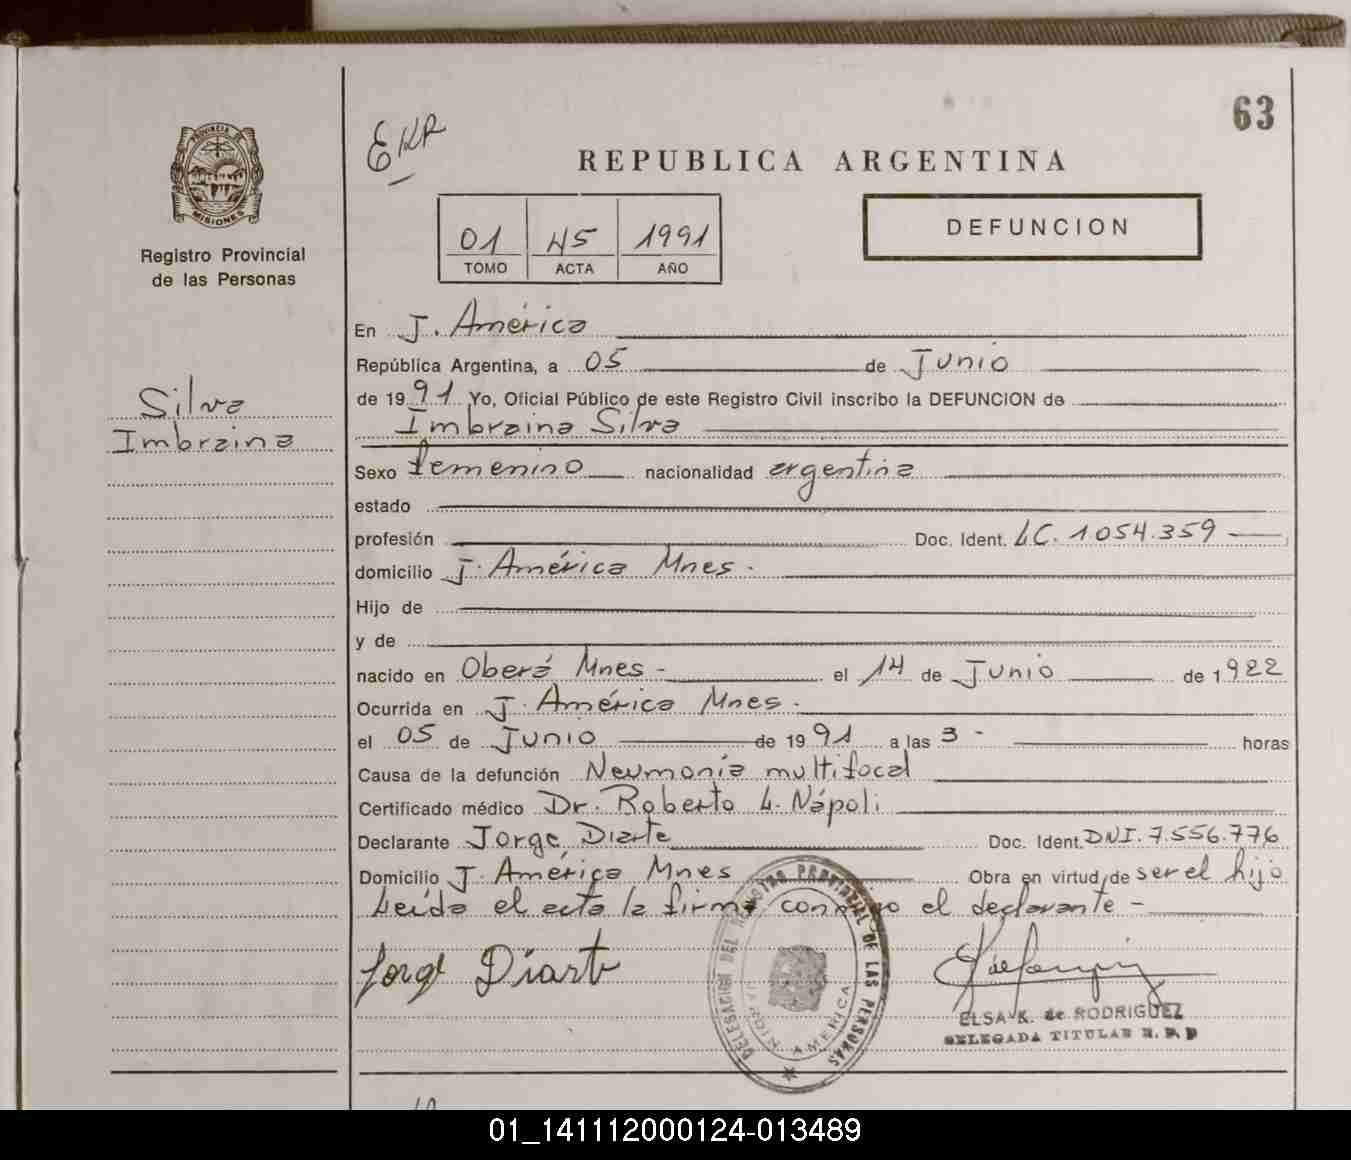 63
PROVINCIA DE
MISIONES
Registro Provincial
de las Personas
Silva
Imbraina
REPUBLICA ARGENTINA
01 45 1991
TOMO ACTA AÑO
DEFUNCION
En J. América
República Argentina, a 05 de Junio
de 1991 Yo, Oficial Público de este Registro Civil inscribo la DEFUNCION de
Imbraina Silva
Sexo femenino nacionalidad argentina
estado
profesión Doc. Ident. LC. 1054.359
domicilio J. América Mnes.
Hijo de
y de
nacido en Oberá Mnes - el 14 de Junio de 1922
Ocurrida en J. América Mnes.
el 05 de Junio de 1991 a las 3 - horas
Causa de la defunción Neumonía multifocal
Certificado médico Dr. Roberto L. Nápoli
Declarante Jorge Diarte Doc. Ident. DNI. 7.556.776
Domicilio J. América Mnes Obra en virtud de ser el hijo
Leída el acta la firma conmigo el declarante -
Jorge Diarte
DELEGACION DEL REGISTRO PROVINCIAL DE LAS PERSONAS
JARDIN AMERICA
ELSA K. de RODRIGUEZ
DELEGADA TITULAR R. P. P
01_141112000124-013489